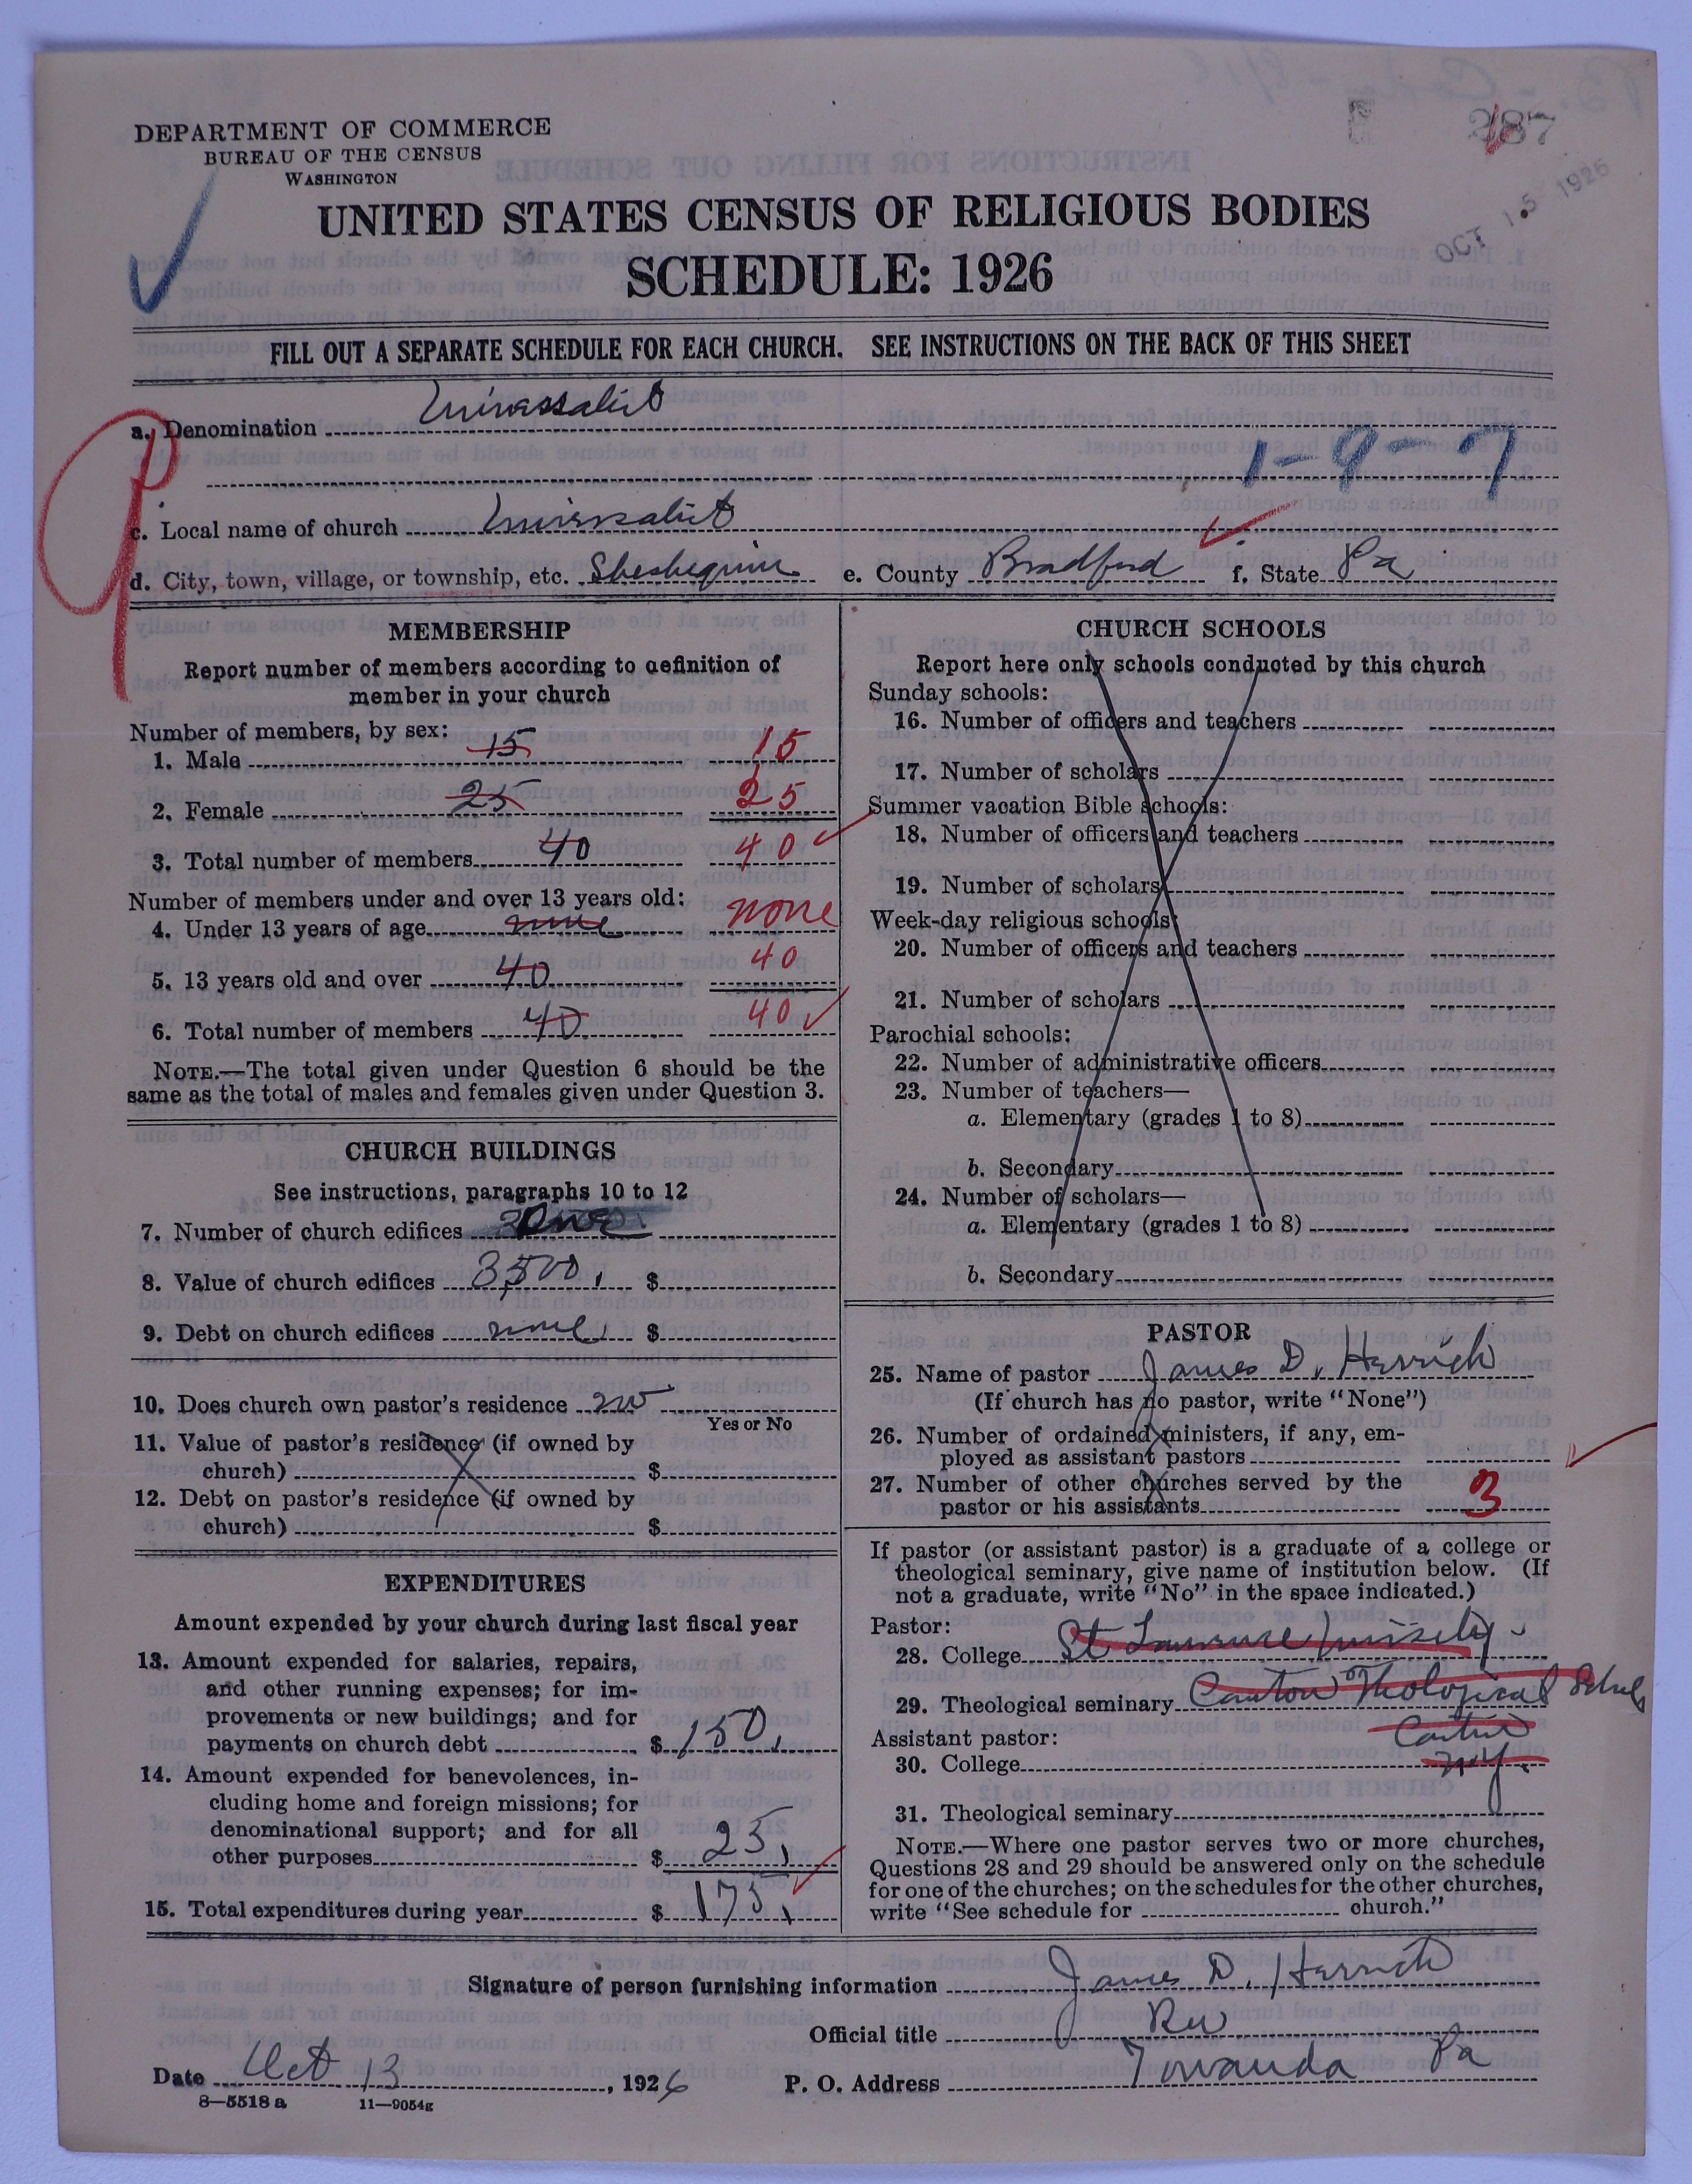 DEPARTMENT OF COMMERCE
BUREAU OF THE CENSUS
WASHINGTON
287
OCT 15 1926
UNITED STATES CENSUS OF RELIGIOUS BODIES
SCHEDULE: 1926
FILL OUT A SEPARATE SCHEDULE FOR EACH CHURCH. SEE INSTRUCTIONS ON THE BACK OF THIS SHEET
a. Denomination Universalist
1-9-7
c. Local name of church Universalist
d. City, town, village, or township, etc. Sheshequin e. County Bradford f. State Pa
MEMBERSHIP
Report number of members according to definition of
member in your church
Number of members, by sex:
1. Male 15 15
2. Female 25 25
3. Total number of members 40 40
Number of members under and over 13 years old:
4. Under 13 years of age none none
5. 13 years old and over 40 40
6. Total number of members 40 40
NOTE.—The total given under Question 6 should be the
same as the total of males and females given under Question 3.
CHURCH BUILDINGS
See instructions, paragraphs 10 to 12
7. Number of church edifices One
8. Value of church edifices 3500, $
9. Debt on church edifices none, $
10. Does church own pastor's residence no
Yes or No
11. Value of pastor's residence (if owned by
church) $
12. Debt on pastor's residence (if owned by
church) $
EXPENDITURES
Amount expended by your church during last fiscal year
13. Amount expended for salaries, repairs,
and other running expenses; for im-
provements or new buildings; and for
payments on church debt $ 150,
14. Amount expended for benevolences, in-
cluding home and foreign missions; for
denominational support; and for all
other purposes $ 25,
15. Total expenditures during year $ 175,
CHURCH SCHOOLS
Report here only schools conducted by this church
Sunday schools:
16. Number of officers and teachers
17. Number of scholars
Summer vacation Bible schools:
18. Number of officers and teachers
19. Number of scholars
Week-day religious schools:
20. Number of officers and teachers
21. Number of scholars
Parochial schools:
22. Number of administrative officers
23. Number of teachers—
a. Elementary (grades 1 to 8)
b. Secondary
24. Number of scholars—
a. Elementary (grades 1 to 8)
b. Secondary
PASTOR
25. Name of pastor James D. Herrick
(If church has no pastor, write "None")
26. Number of ordained ministers, if any, em-
ployed as assistant pastors
27. Number of other churches served by the
pastor or his assistants 3
If pastor (or assistant pastor) is a graduate of a college or
theological seminary, give name of institution below. (If
not a graduate, write "No" in the space indicated.)
Pastor:
28. College St. Lawrence University
29. Theological seminary Canton Theological School
Assistant pastor: Canton
30. College N.Y.
31. Theological seminary
NOTE.—Where one pastor serves two or more churches,
Questions 28 and 29 should be answered only on the schedule
for one of the churches; on the schedules for the other churches,
write "See schedule for church."
Signature of person furnishing information James D. Herrick
Official title Rev
Date Oct 13, 1926 P. O. Address Towanda Pa
8—5518 a 11—9054g